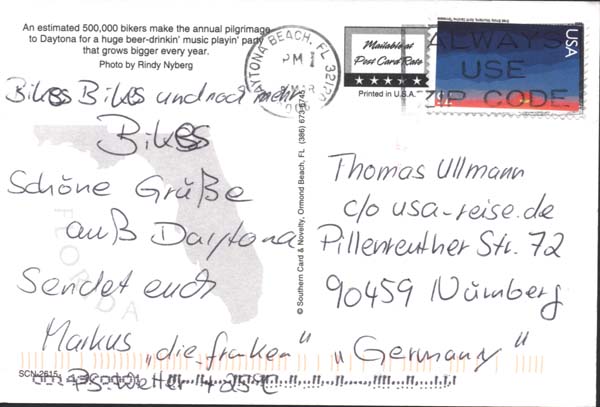 An estimated 500,000 bikers make the annual pilgrimage
to Daytona for a huge beer-drinkin' music playin' party
that grows bigger every year.
Photo by Rindy Nyberg
Bikes Bikes und noch mehr
Bikes
Schöne Grüße
auß Daytona
Sendet euch
Markus „die franken"
PS. Wetter +25°C
FLORIDA
SCN-2615
© Southern Card & Novelty, Ormond Beach, FL (386) 673-8745
DAYTONA BEACH, FL
PM
Mailable at
Post Card Rate
Printed in U.S.A.
USA
ALWAYS
USE
ZIP CODE
Thomas Ullmann
c/o usa-reise.de
Pillenreuther Str. 72
90459 Nürnberg
„Germany"